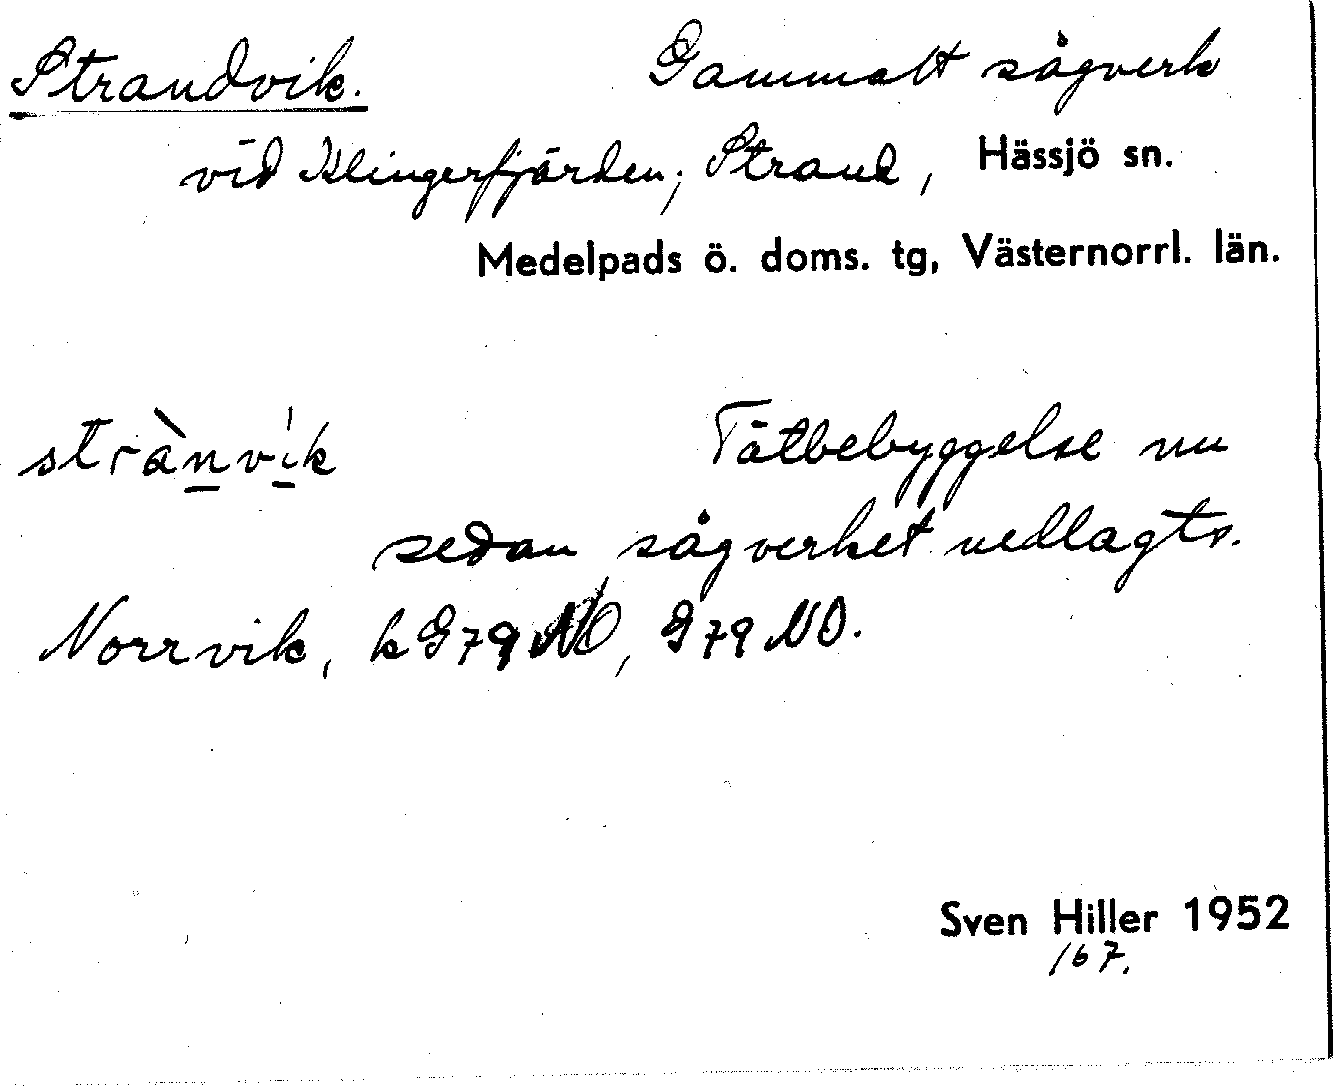 Strandvik. Gammalt sågverk
vid Klingerfjärden; Strand, Hässjö sn.
Medelpads ö. doms. tg, Västernorrl. län.
strànvík Tätbebyggelse nu
sedan sågverket nedlagts.
Norrvik, k G79 NO, G79 NO.
Sven Hiller 1952
167.